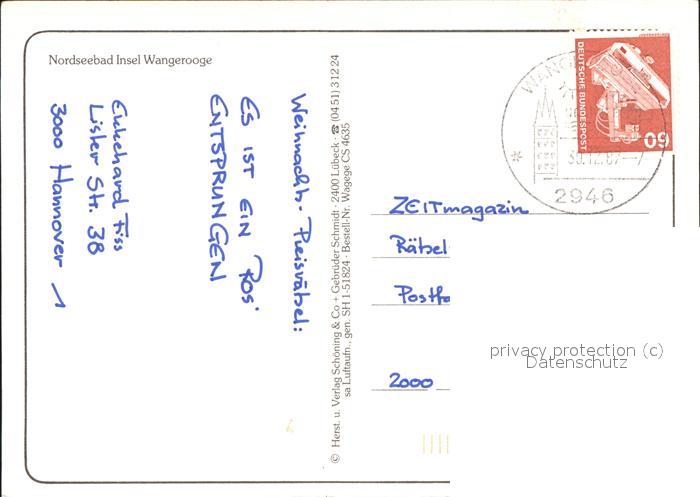 Nordseebad Insel Wangerooge
Weihnachts-Preisrätsel:
ES IST EIN ROS'
ENTSPRUNGEN
Ekkehard Fiss
Lister Str. 38
3000 Hannover 1
© Herst. u. Verlag Schöning & Co + Gebrüder Schmidt · 2400 Lübeck · ☎ (0451) 31224
sa Luftaufn., gen. SH 1-51824 · Bestell-Nr. Wagege CS 4635
DEUTSCHE BUNDESPOST
60
30.12.87-7
2946
ZEITmagazin
Rätsel
Postf
2000
privacy protection (c)
Datenschutz